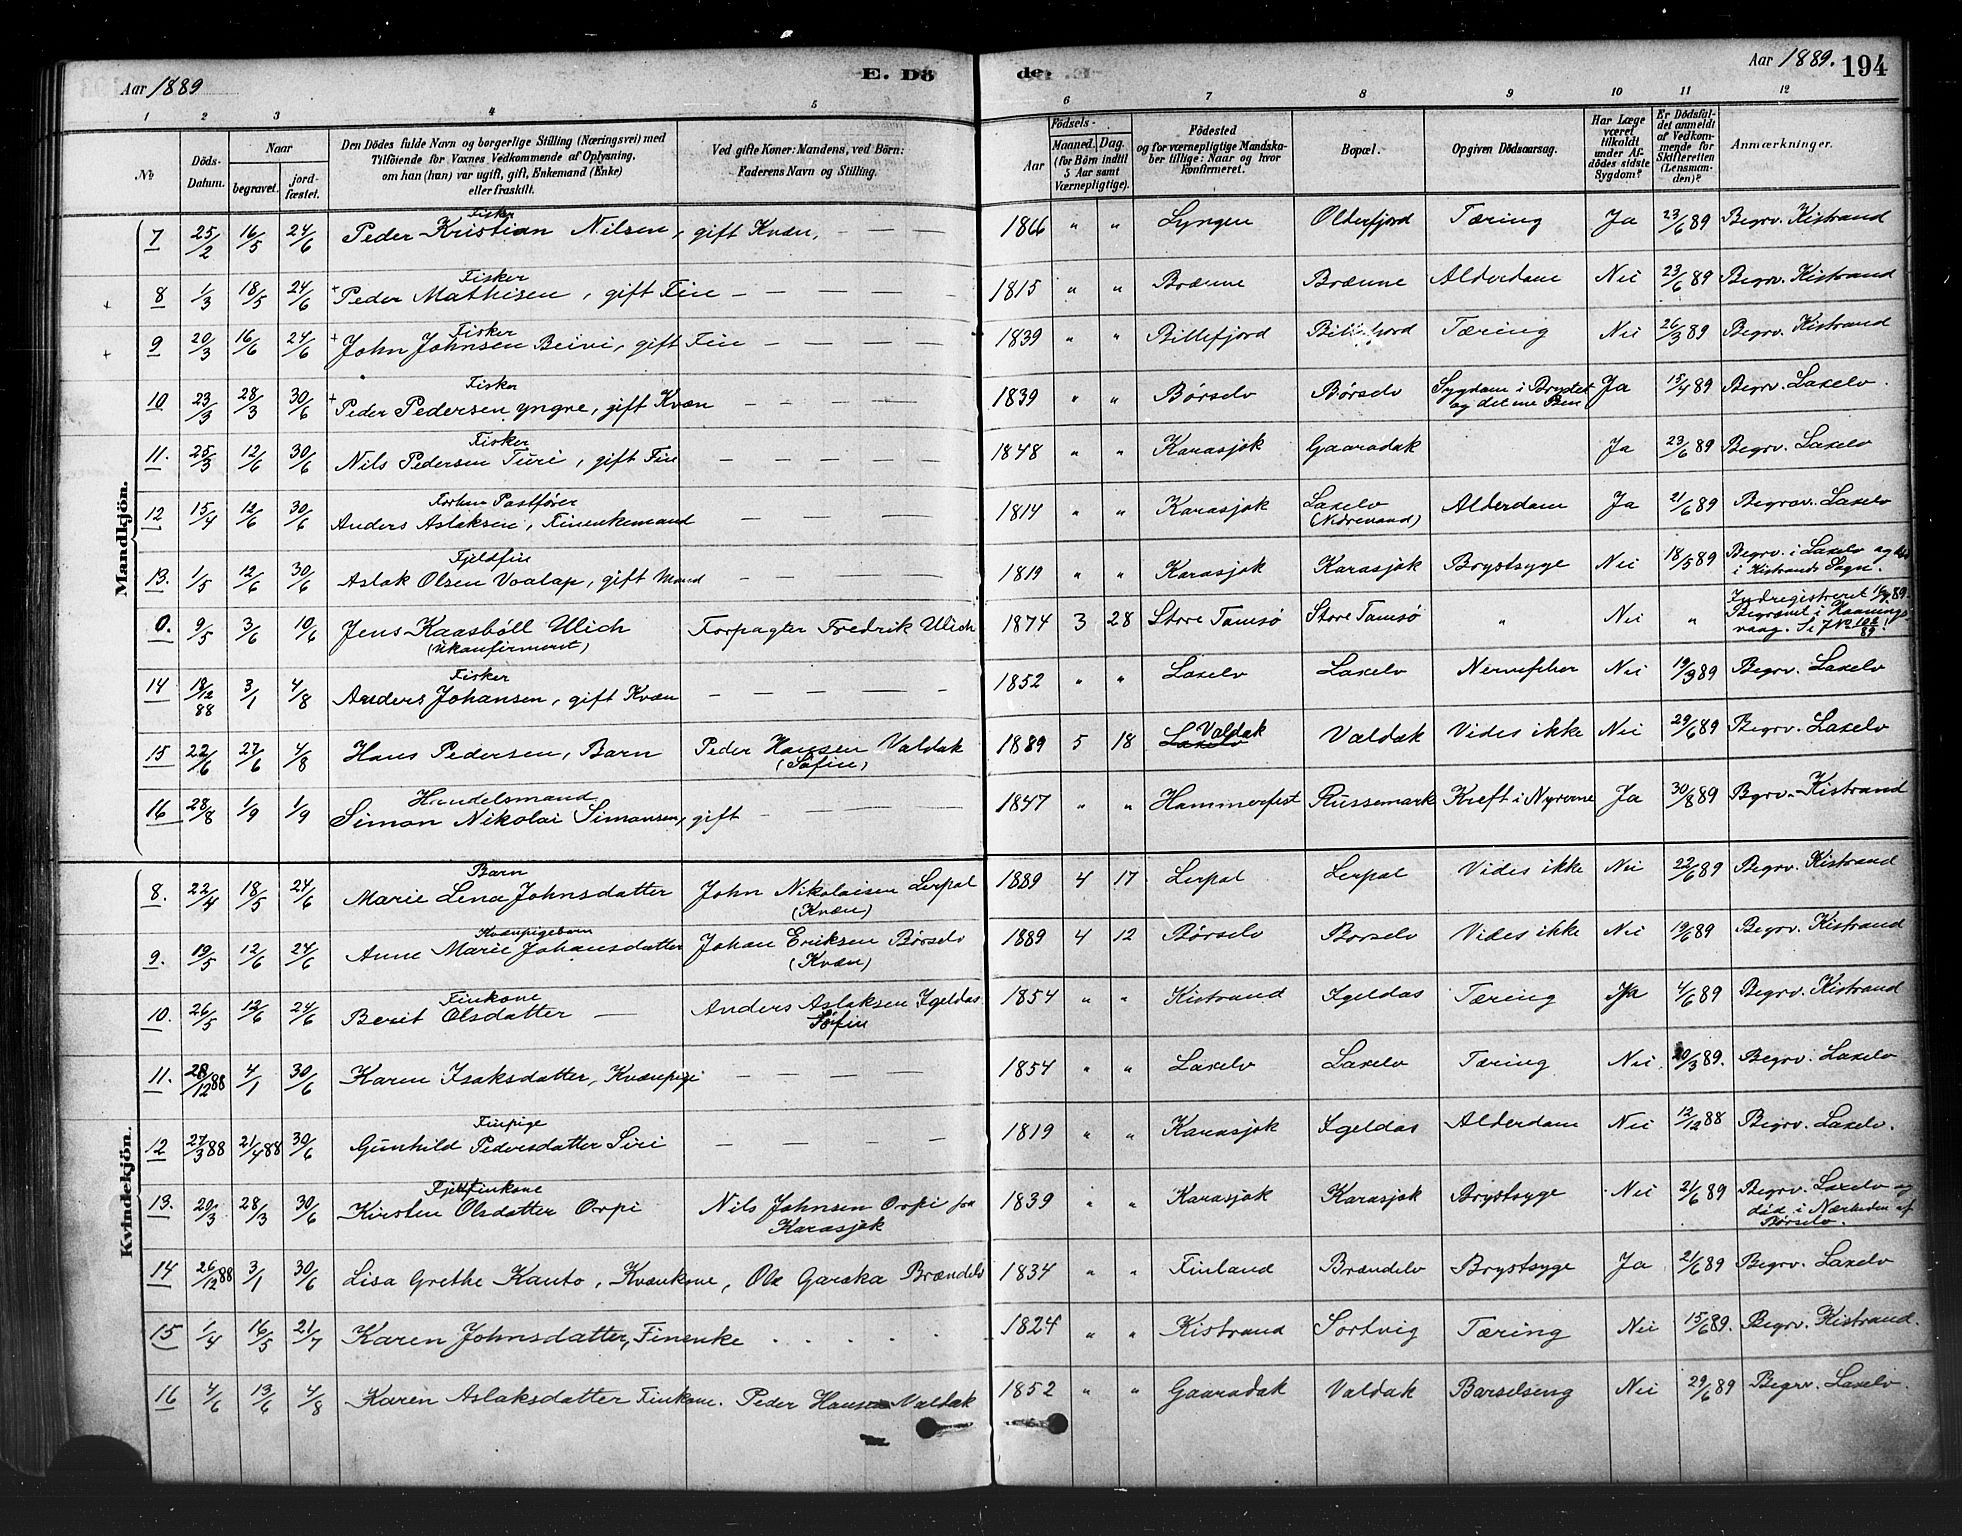 Aar 1889
E. Dö
de.
Aar 1889. 194
1 2 3 4 5 6 7 8 9 10 11 12
No
Döds-Datum.
Naar
begravet.
jord-fæstet.
Den Dödes fulde Navn og borgerlige Stilling (Næringsvei) med
Tilföiende for Voxnes Vedkommende af Oplysning,
om han (hun) var ugift, gift, Enkemand (Enke)
eller fraskilt.
Ved gifte Koner: Mandens, ved Börn:
Faderens Navn og Stilling.
Födsels-
Aar
Maaned.
Dag.
(for Börn indtil
5 Aar samt
Værnepligtige).
Födested
og for værnepligtige Mandska-
ber tillige: Naar og hvor
konfirmeret.
Bopæl.
Opgiven Dödsaarsag.
Har Læge
været
tilkaldt
under Af-
dödes sidste
Sygdom?
Er Dödsfal-
det anmeldt
af Vedkom-
mende for
Skifteretten
(Lensman-
den)?
Anmærkninger.
Mandkjön.
7 25/2 16/5 24/6 Fisker Peder Kristian Nilsen, gift Kvæn, — — — 1866 " " Lyngen Olderfjord Tæring Ja 23/6 89 Begrv. Kistrand
8 1/3 18/5 24/6 Fisker + Peder Mathisen, gift Fin — — — — 1815 " " Brænne Brænne Alderdom Nei 23/6 89 Begrv. Kistrand
9 20/3 16/6 24/6 Fisker + John Johnsen Beivi, gift Fin 1839 " " Billefjord Billefjord Tæring Nei 26/3 89 Begrv. Kistrand
10 23/3 28/3 30/6 Fisker + Peder Pedersen yngre, gift Kvæn — — — — 1839 " " Børselv Børselv Sygdom i Brystet og det ene Ben Ja 15/4 89 Begrv. Laxelv.
11. 25/3 12/6 30/6 Fisker Nils Pedersen Turi, gift Fin — — — — 1848 " " Karasjok Gaaradak Ja 23/6 89 Begrv. Laxelv
12 15/4 12/6 30/6 Forhen Postfører Anders Aslaksen, Finenkemand — — — — 1814 " " Karasjok Laxelv (Ndrevand) Alderdom Ja 21/6 89 Begrav. Laxelv
13. 1/5 12/6 30/6 Fjeldfin Aslak Olsen Voalap, gift Mand — — — — 1819 " " Karasjok Karasjok Brystsyge Nei 18/5 89 Begrv. i Laxelv og død i Kistrands Sogn.
0. 9/5 3/6 10/6 Jens Kaasböll Ulich (ukonfirmeret) Forpagter Fredrik Ulich 1874 3 28 Store Tamsø Store Tamsø " Nei " Indregistreret Begravet i Honnings-vaag.
14 18/12 88 3/1 4/8 Fisker Anders Johansen, gift Kvæn — — — — 1852 " " Laxelv Laxelv Nervefeber Nei 19/3 89 Begrv. Laxelv
15 22/6 27/6 4/8 Hans Pedersen, Barn Peder Hansen Valdak (Søfin) 1889 5 18 Laxelv Valdak Valdak Vides ikke Nei 29/6 89 Begrv. Laxelv
16 28/8 1/9 1/9 Handelsmand Simon Nikolai Simonsen, gift — — — — 1847 " " Hammerfest Russemark Kreft i Nyrerne Ja 30/8 89 Bgrv. Kistrand
Kvindekjön.
8. 22/4 18/5 24/6 Barn Marie Lena Johnsdatter John Nikolaisen Lerpol (Kvæn) 1889 4 17 Lerpol Lerpol Vides ikke Nei 22/6 89 Begrv. Kistrand
9. 19/5 12/6 24/6 Kvænpigebarn Anne Marie Johansdatter Johan Eriksen Børselv (Kvæn) 1889 4 12 Børselv Borselv Vides ikke Nei 19/6 89 Begrv. Kistrand
10. 26/5 12/6 24/6 Finkone Berit Olsdatter — Anders Aslaksen Igeldas Søfin 1854 " " Kistrand Igeldas Tæring Ja 4/6 89 Begrv. Kistrand
11. 28/12 88 4/1 30/6 Karen Isaksdatter, Kvænpige — — — — 1854 " " Laxelv Laxelv Tæring Nei 20/3 89. Begrv. Laxelv
12 27/3 88 21/4 88 30/6 Finpige Gunhild Pedersdatter Siri — — — — 1819 " " Karasjok Igeldas Alderdom Nei 12/12 88 Begrv. Laxelv.
13. 20/3 28/3 30/6 Fjeldfinkone Kirsten Olsdatter Orpi Nils Johnsen Orpi fra Karasjok 1839 " " Karasjok Karasjok Brystsyge Nei 21/6 89 Begrv. Laxelv og død i Nærheden af Børselv.
14 26/12 88 3/1 30/6 Lisa Grethe Kanto, Kvænkone, Ole Garaka Brændelv 1834 " " Finland Brændelv Brystsyge Ja 21/6 89 Begrv. Laxelv
15 1/4 16/5 21/7 Karen Johnsdatter, Finenke . . . . . 1824 " " Kistrand Sortvig Tæring Nei 15/6 89. Begrv. Kistrand.
16 4/6 13/6 4/8 Karen Aslaksdatter Finkone. Peder Hansen Valdak 1852 " " Gaaradak Valdak Barselseng Nei 29/6 89 Begrv. Laxelv